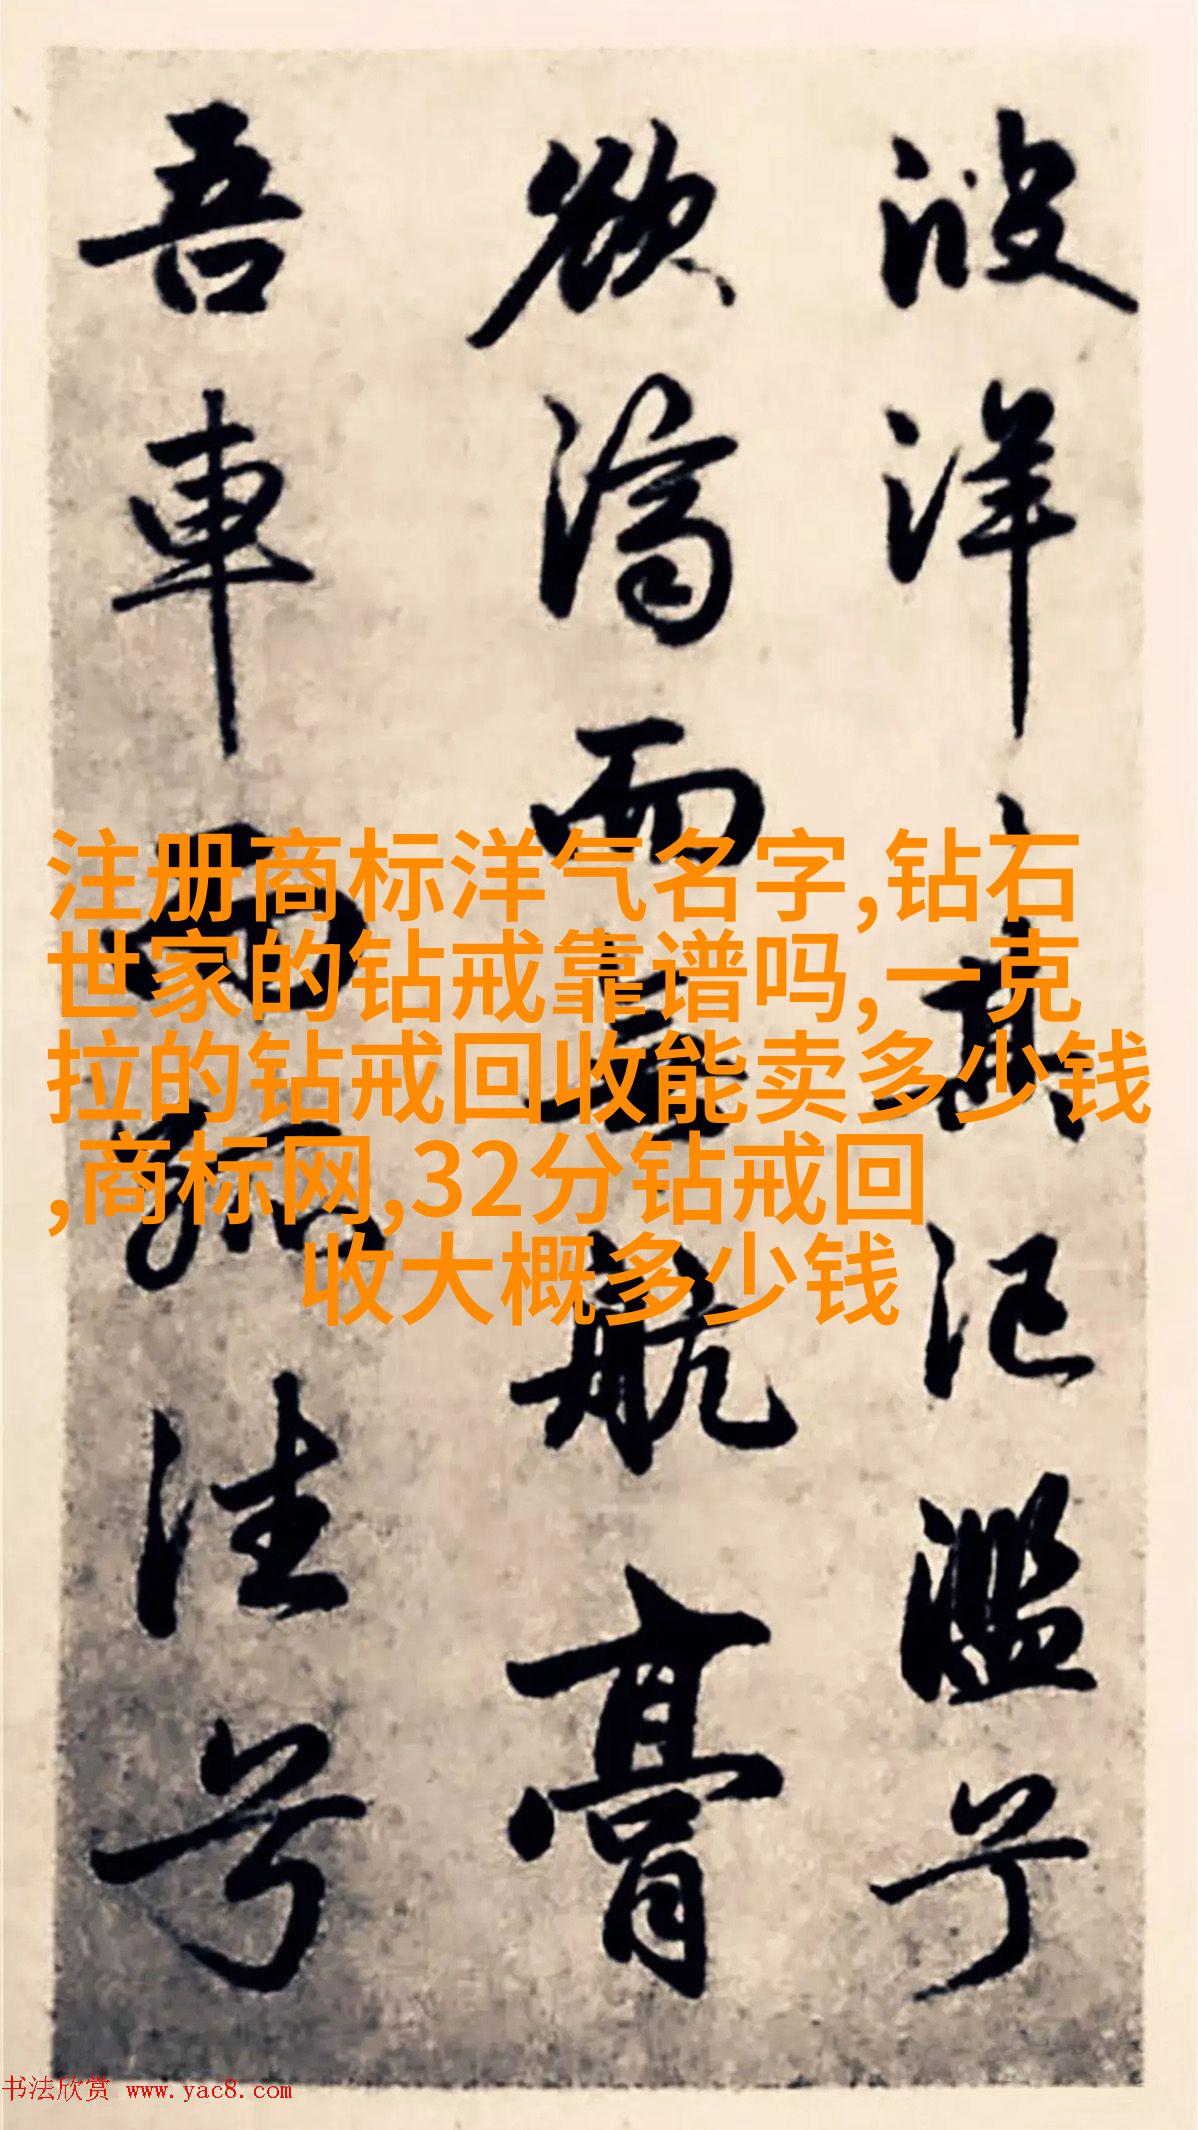 注册商标洋气名字,钻石
世家的钻戒靠谱吗,一克
拉的钻戒回收能卖多少钱
,商标网,32分钻戒回
收大概多少钱
洋其氾濫兮
欲濟而無航膏
吾車而兮
书法欣赏 www.yac8.com